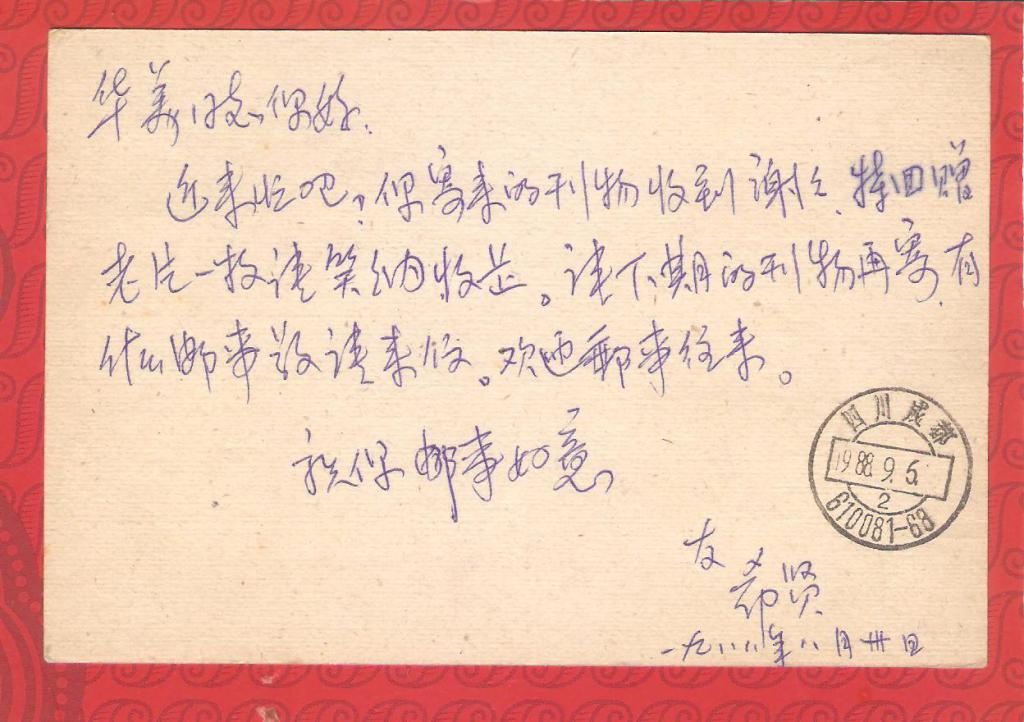 华美同志：您好.
近来忙吧？您寄来的刊物收到谢谢. 特回赠
老片一枚请笑纳收止。请下期的刊物再寄.有
什么邮事敬请来信。欢迎邮事往来。
祝您邮事如意
友
希贤
一九八八年八月卅日
四川成都
1988.9.5.
2
610081-63